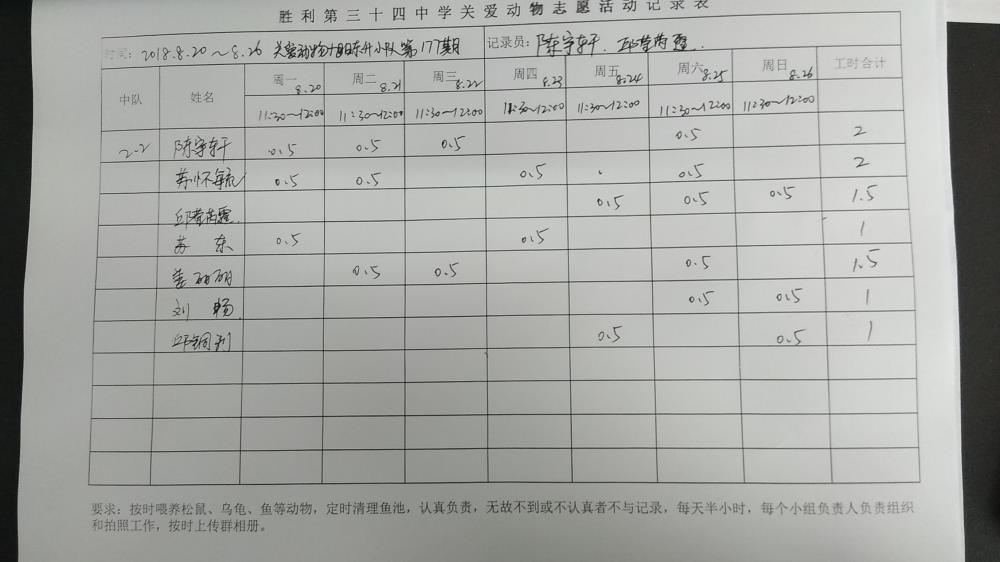 胜利第三十四中学关爱动物志愿活动记录表
时间：2018.8.20～8.26 关爱动物 小队第177期 记录员：陈宇轩
中队 姓名 周一 8.20 周二 8.21 周三 8.22 周四 8.23 周五 8.24 周六 8.25 周日 8.26 工时合计
11:30～12:00 11:30～12:00 11:30～12:00 11:30～12:00 11:30～12:00 11:30～12:00 11:30～12:00
2-2 陈宇轩 0.5 0.5 0.5 0.5 2
0.5 0.5 0.5 0.5 2
0.5 0.5 0.5 1.5
苏东 0.5 0.5 1
0.5 0.5 0.5 1.5
刘畅 0.5 0.5 1
0.5 0.5 1
要求：按时喂养松鼠、乌龟、鱼等动物，定时清理鱼池，认真负责，无故不到或不认真者不与记录，每天半小时，每个小组负责人负责组织
和拍照工作，按时上传群相册。